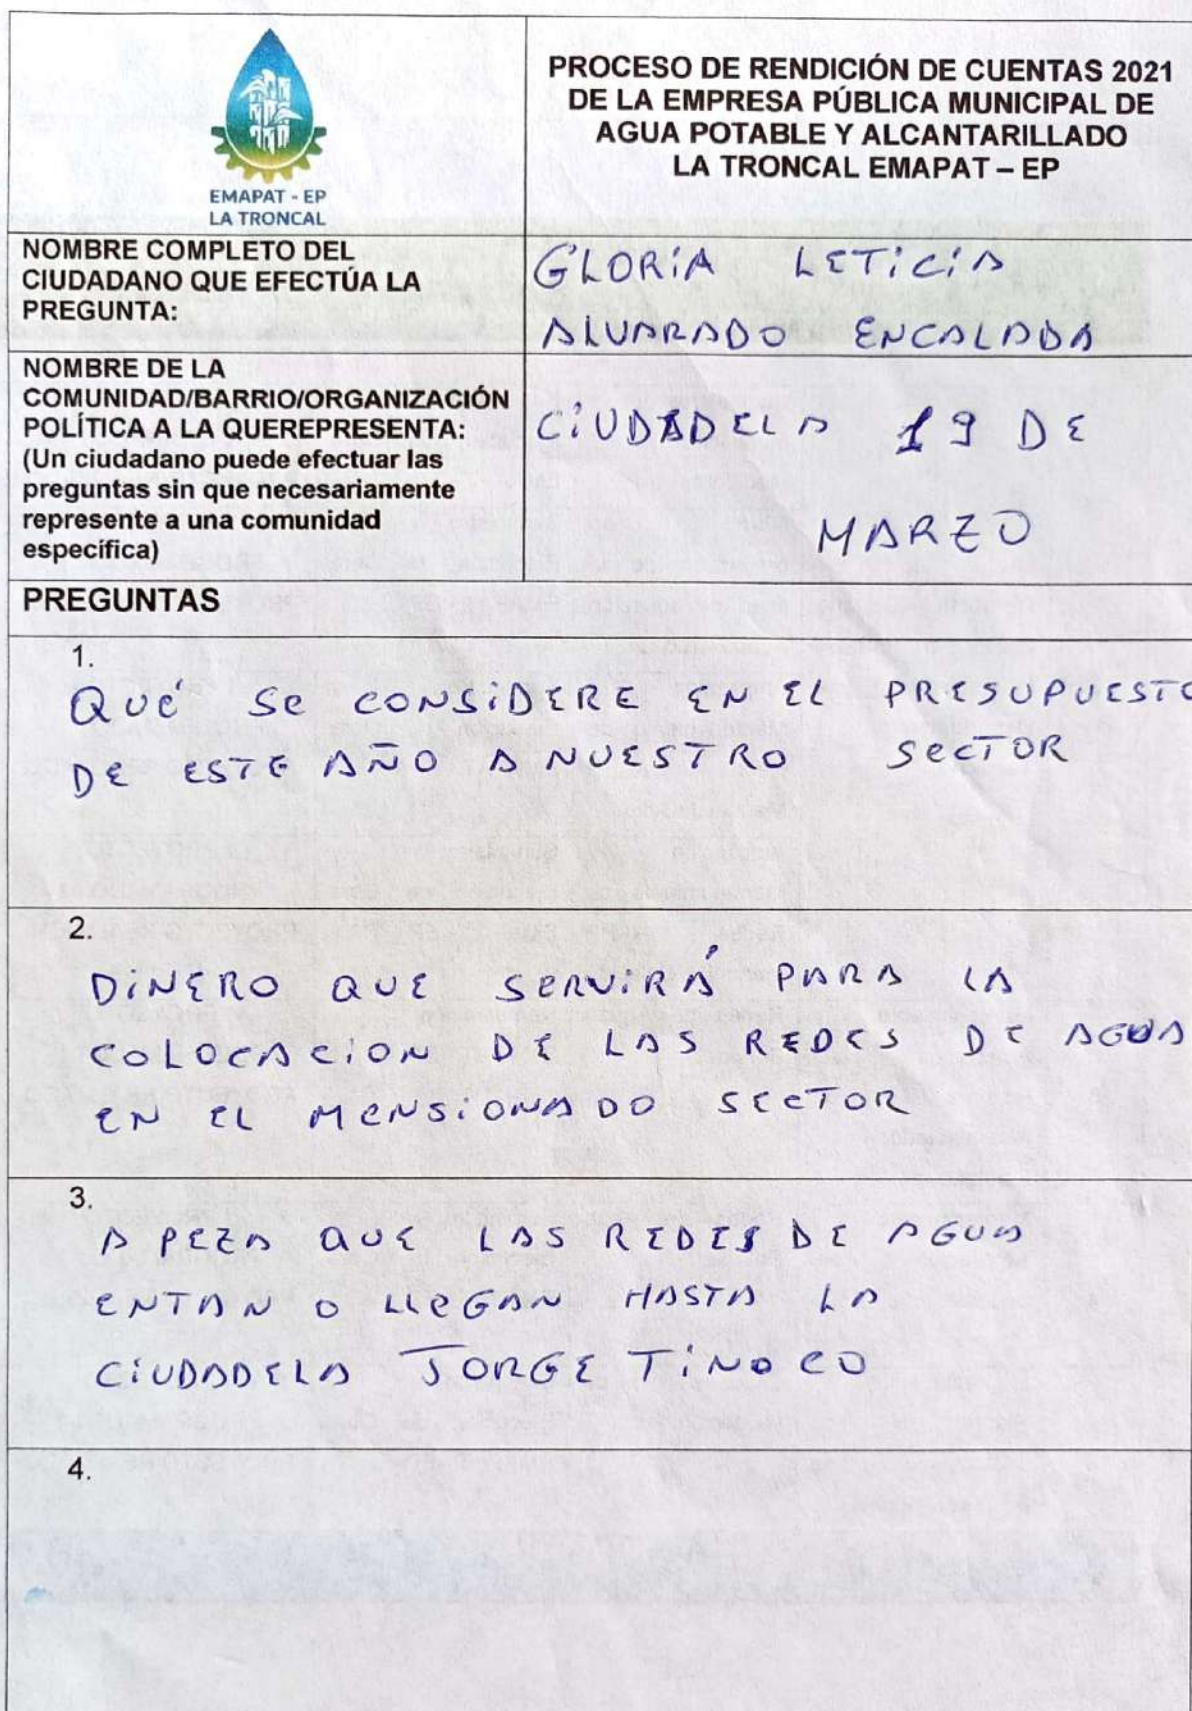 EMAPAT - EP
LA TRONCAL
PROCESO DE RENDICIÓN DE CUENTAS 2021
DE LA EMPRESA PÚBLICA MUNICIPAL DE
AGUA POTABLE Y ALCANTARILLADO
LA TRONCAL EMAPAT – EP
NOMBRE COMPLETO DEL
CIUDADANO QUE EFECTÚA LA
PREGUNTA:
GLORIA LETICIA
ALVARADO ENCALADA
NOMBRE DE LA
COMUNIDAD/BARRIO/ORGANIZACIÓN
POLÍTICA A LA QUEREPRESENTA:
(Un ciudadano puede efectuar las
preguntas sin que necesariamente
represente a una comunidad
específica)
CIUDADELA 19 DE
MARZO
PREGUNTAS
1.
QUÉ SE CONSIDERE EN EL PRESUPUESTO
DE ESTE AÑO A NUESTRO SECTOR
2.
DINERO QUE SERVIRÁ PARA LA
COLOCACION DE LAS REDES DE AGUA
EN EL MENSIONADO SECTOR
3.
A PEZA QUE LAS REDES DE AGUA
ENTAN O LLEGAN HASTA LA
CIUDADELA JORGE TINOCO
4.